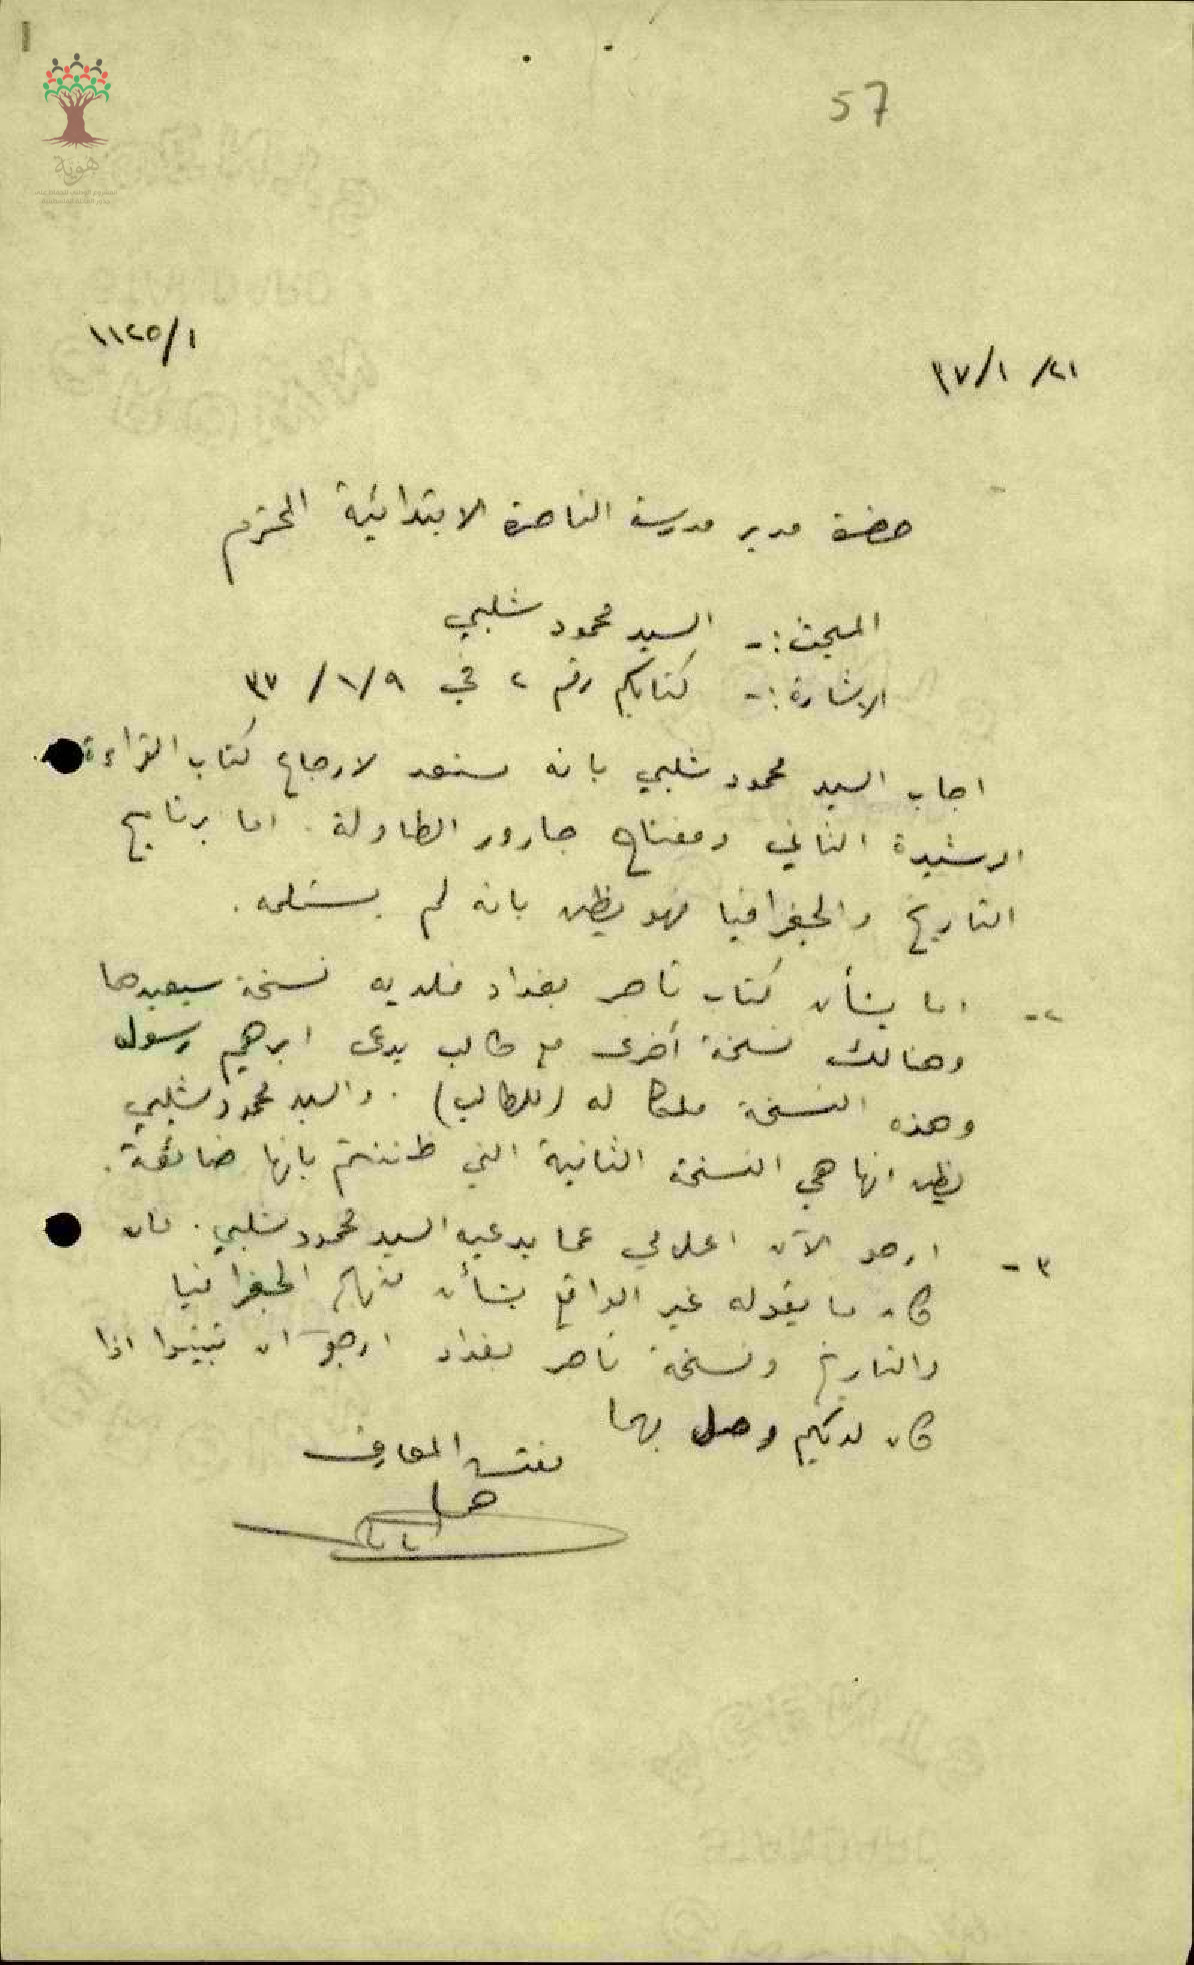 57
١١٢٥/١
٢١/ ١/ ٣٧
حضرة مدير مدرسة الناصرة الابتدائية المحترم
المبحث :- السيد محمود شلبي
الاشارة :- كتابكم رقم ٢ في ٩/ ١/ ٣٧
اجاب السيد محمود شلبي بانه مستعد لارجاع كتاب القراءة
الرشيدة الثاني ومفتاح جارور الطاولة . اما برنامج
التاريخ والجغرافيا فهو يظن بانه لم يستلمه .
٢- اما بشأن كتاب تاجر بغداد فلديه نسخة سيعيدها
وهنالك نسخة أخرى مع طالب يدعى ابرهيم رسول
وهذه النسخة ملكا له (للطالب) . والسيد محمود شلبي
يظن انها هي النسخة الثانية التي ظننتم بانها ضائعة .
٣- ارجو الآن اعلامي عما يدعيه السيد محمود شلبي . فان
كان ما يقوله غير الواقع بشأن الجغرافيا
والتاريخ ونسخة تاجر بغداد ارجو ان تبينوا اذا
كان لديكم وصل بهما
مفتش المعارف
هوية